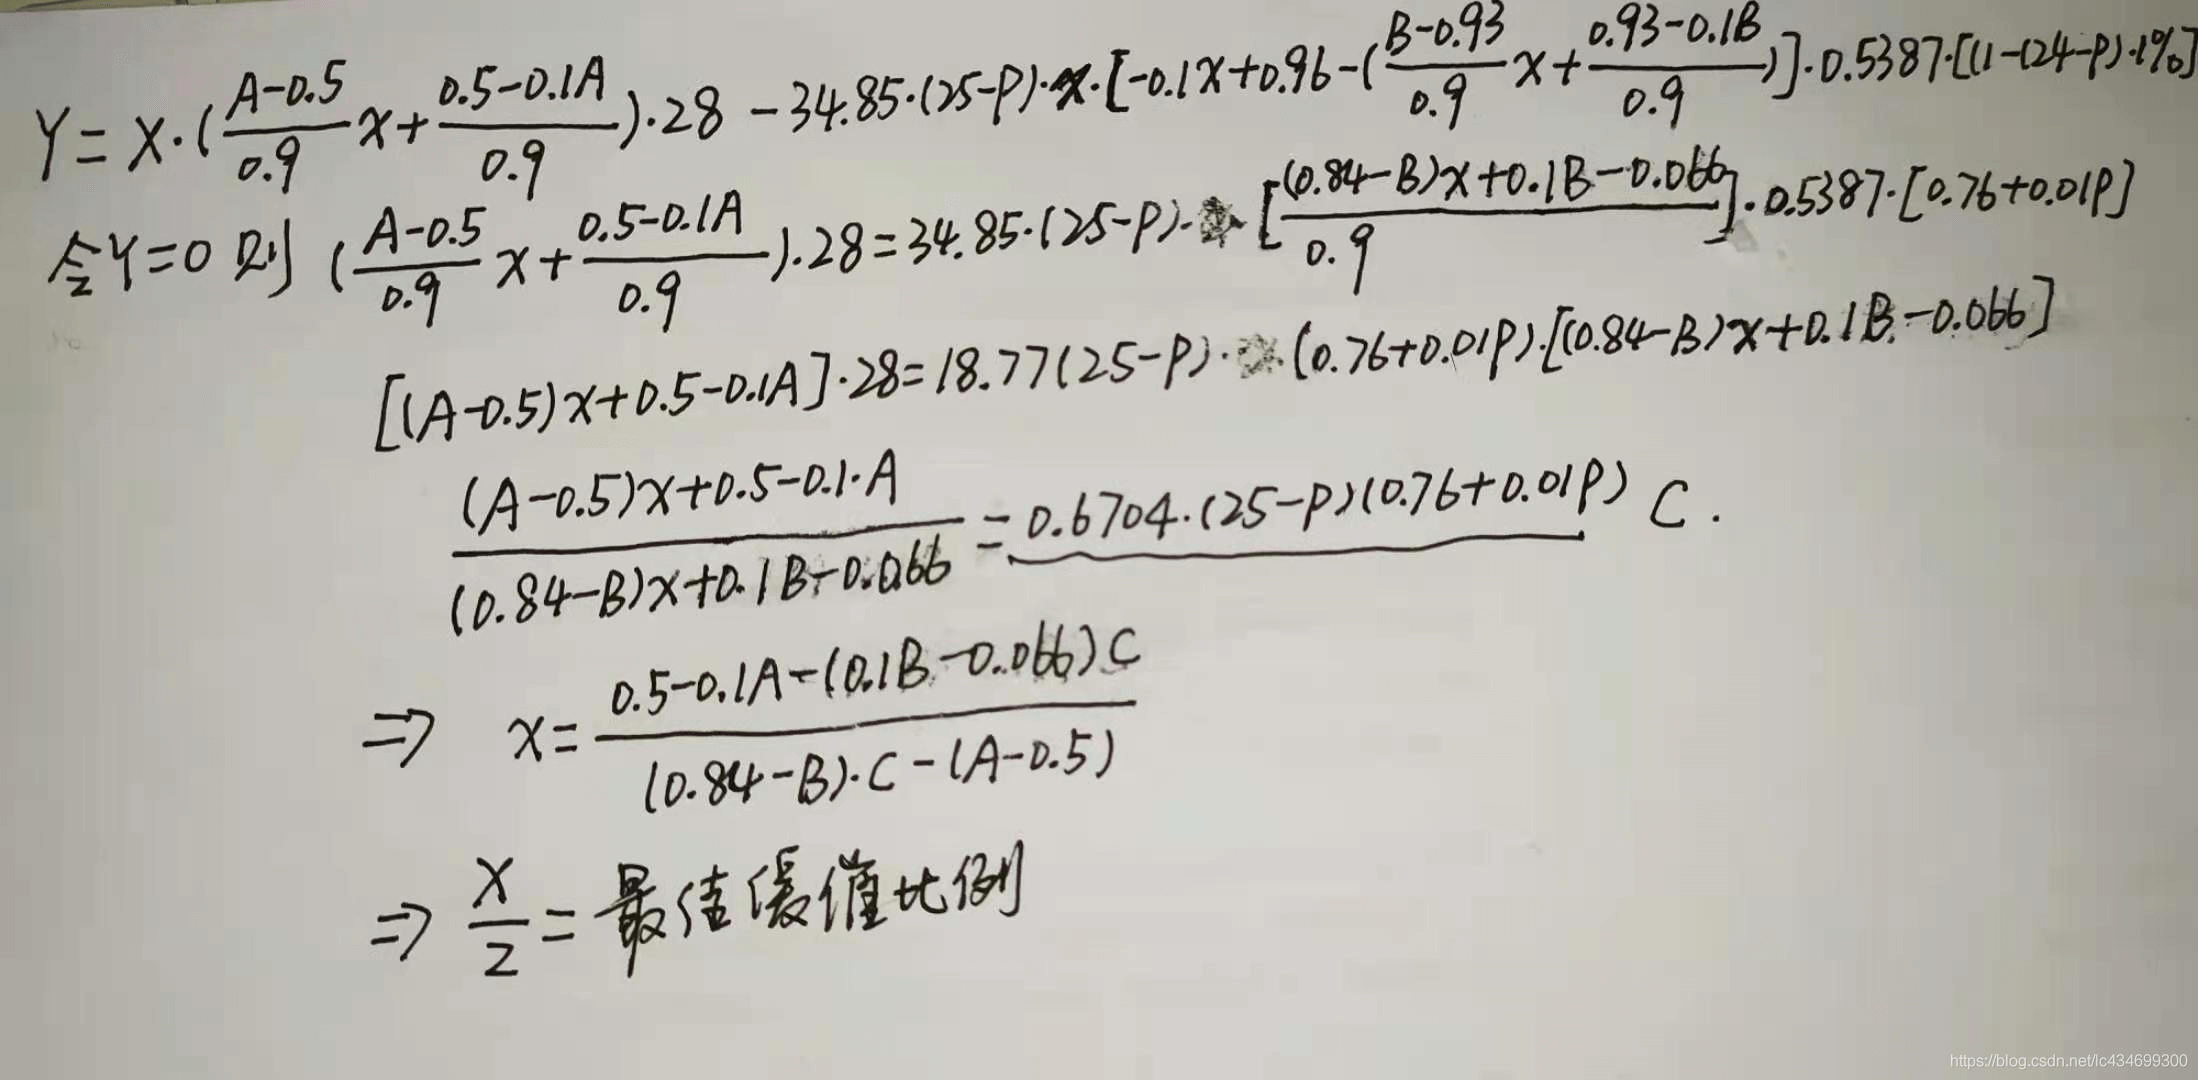 Y = X·(\frac{A-0.5}{0.9}x+\frac{0.5-0.1A}{0.9})·28 - 34.85·(25-P)·x·[-0.1x+0.96-(\frac{B-0.93}{0.9}x+\frac{0.93-0.1B}{0.9})]·0.5387·[(1-(24-P)·1%]
令Y=0 则 (\frac{A-0.5}{0.9}x+\frac{0.5-0.1A}{0.9})·28=34.85·(25-P)·[\frac{(0.84-B)x+0.1B-0.066}{0.9}]·0.5387·[0.76+0.01P]
[(A-0.5)x+0.5-0.1A]·28=18.77(25-P)·(0.76+0.01P)·[(0.84-B)x+0.1B-0.066]
\frac{(A-0.5)x+0.5-0.1·A}{(0.84-B)x+0.1B-0.066} = 0.6704·(25-P)(0.76+0.01P) C.
⇒ x=\frac{0.5-0.1A-(0.1B-0.066)C}{(0.84-B)·C-(A-0.5)}
⇒ \frac{X}{2} = 最佳缓催比例
https://blog.csdn.net/lc434699300